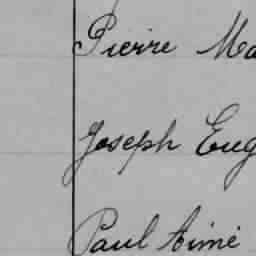 Pierre Ma
Joseph Eug
Paul Aimé